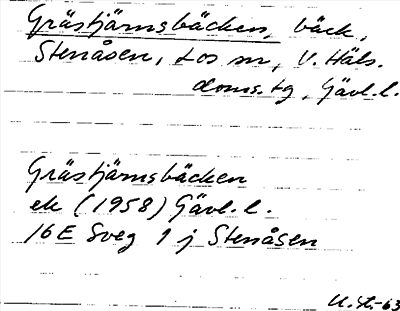 Grästjärnsbäcken, bäck,
Stenåsen, Los sn, V. Häls.
doms.tg, Gävl.l.
Grästjärnsbäcken
ek (1958) Gävl.l.
16E Sveg 1 j Stenåsen
U.St.-63